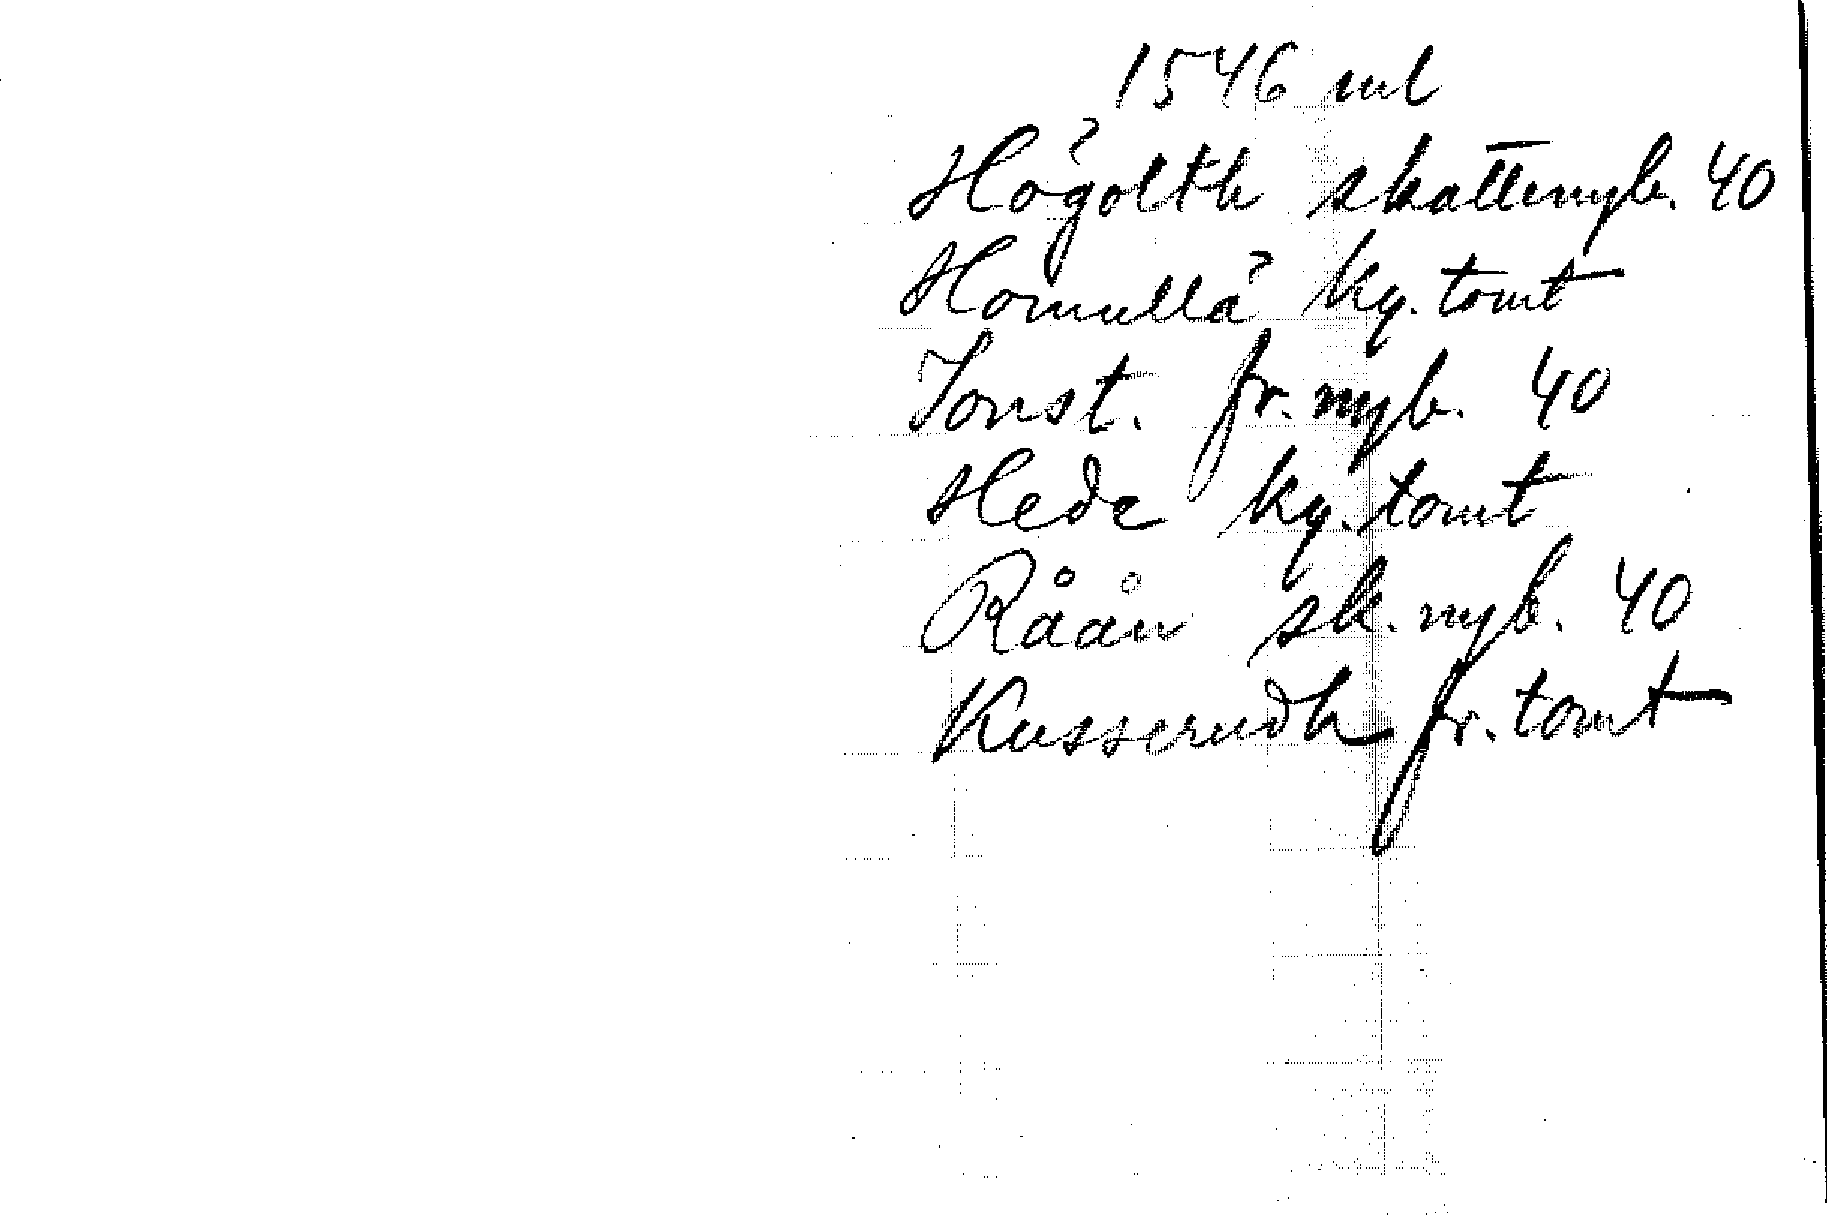 1546 ml
Högolth skattenyb. 40
Homullå kg. tomt
Jonst. fr. nyb. 40
Hede kg. tomt
Råån sk. nyb. 40
Kusserudh fr. tomt